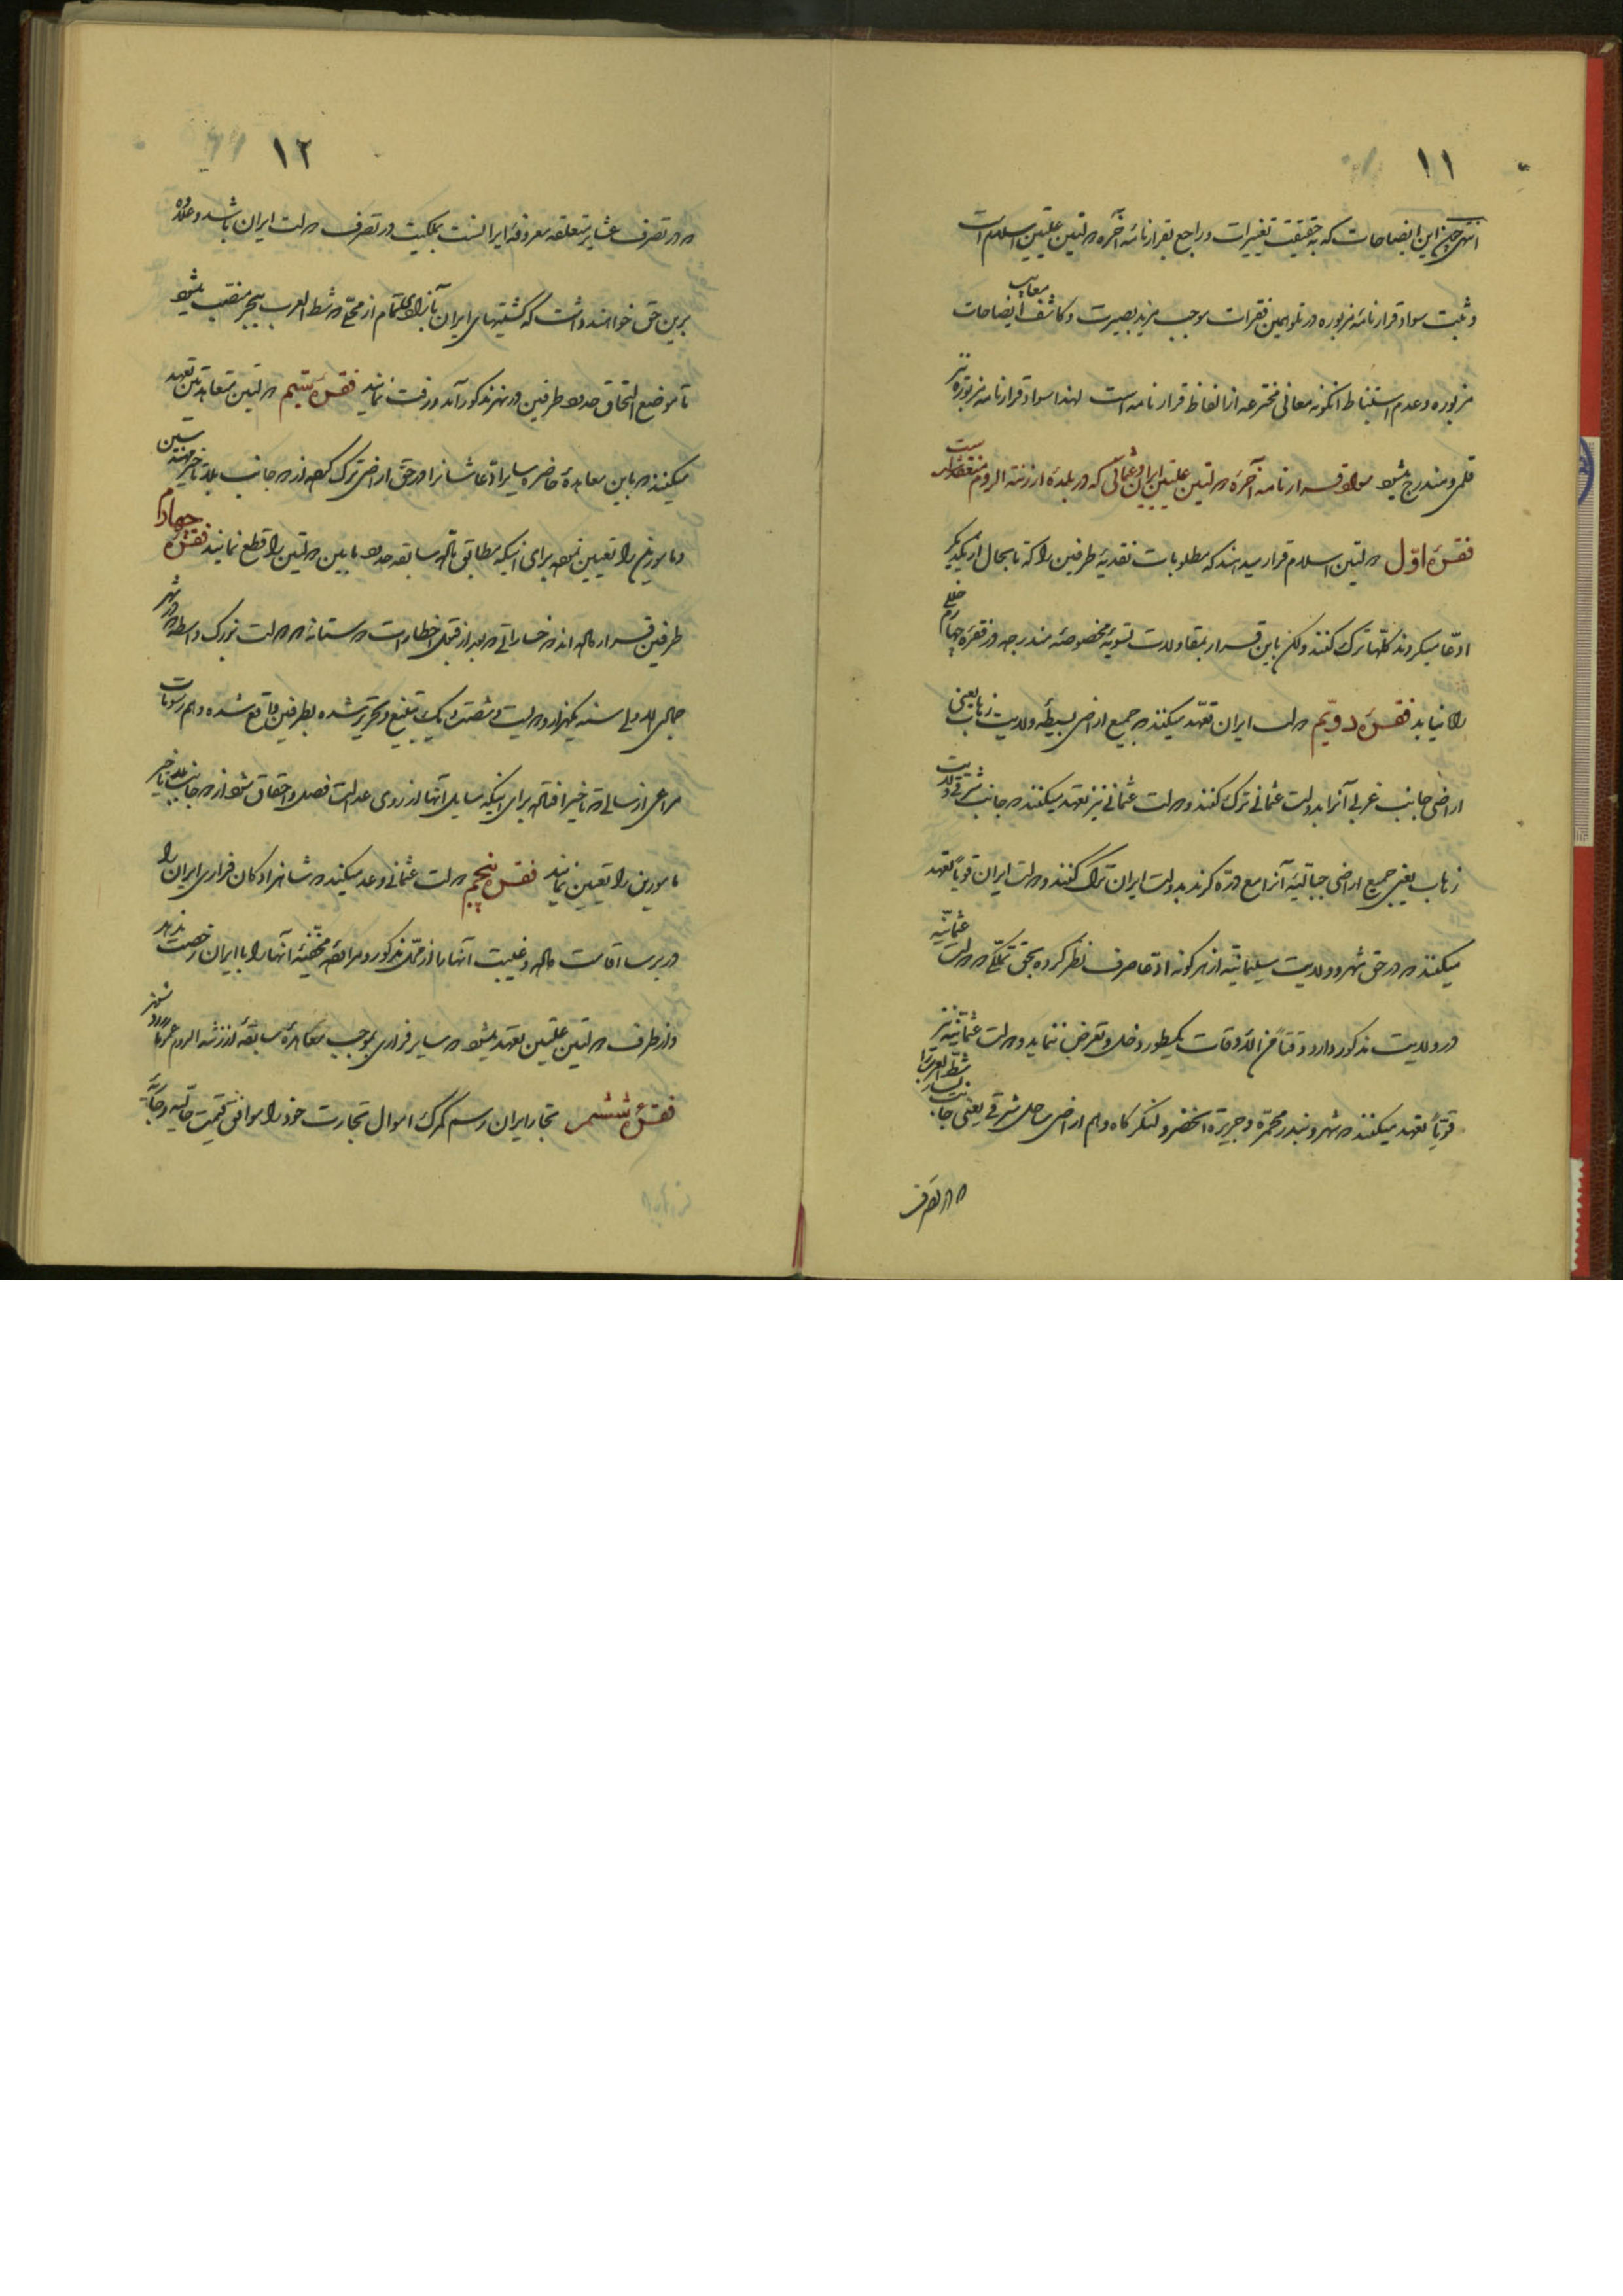 ۱۱
انتهی چون این ایضاحات که به حقیقت تغییرات و راجع بقرارنامه آخره دولتین علیتین اسلام است
و ثبت سواد قرارنامه مزبوره در تلو همین فقرات موجب مزید بصیرت و کاشف معایب ایضاحات
مزبوره و عدم استنباط اینگونه معانی مخترعه از الفاظ قرارنامه است لهذا سواد قرارنامه مزبوره نیز
قلمی و مندرج میشود سواد قرارنامه آخره دولتین علیتین ایران و عثمانی که در بلده ارزنة الروم منعقد شده است
فقره اول دولتین اسلام قرار میدهند که مطلوبات نقدیه طرفین را که تا بحال از یکدیگر
ادعا میکردند کلها ترک کنند ولکن باین قرار بمقاولات تسویه مخصوصه مندرجه در فقره چهارم خللی
راه نیابد فقره دویم دولت ایران تعهد میکند که جمیع اراضی بسیطه ولایت زهاب یعنی
اراضی جانب غربی آنرا بدولت عثمانی ترک کنند و دولت عثمانی نیز تعهد میکند که جانب شرقی ولایت
زهاب یعنی جمیع اراضی جبالیه آنرا مع دره کرند بدولت ایران ترک کنند و دولت ایران قویا تعهد
میکند که در حق شهر و ولایت سلیمانیه از هر گونه ادعا صرف نظر کرده بحق تملکی که دولت عثمانیه
در ولایت مذکور دارد وقتا من الاوقات یکطور دخل و تعرض ننماید و دولت عثمانیه نیز
قویا تعهد میکند که شهر و بندر محمره و جزیرة الخضر و لنگرگاه و هم اراضی ساحل شرقی یعنی جانب یسار شط العرب را
که در تصرف
۱۲
که در تصرف عشایر متعلقه معروفه ایرانست بملکیت در تصرف دولت ایران باشد و علاوه
برین حق خواهند داشت که کشتیهای ایران بآزادی تمام از محلی که شط العرب ببحر منصب میشود
تا موضع التحاق حدود طرفین در نهر مذکور آمد و رفت نمایند فقره سیم دولتین متعاهدتین تعهد
میکنند که باین معاهده حاضره سایر ادعاشانرا در حق اراضی ترک کرده از دو جانب بلا تاخیر مهندسین
و مامورین را تعیین نموده برای اینکه مطابق ماده سابقه حدود مابین دولتین را قطع نمایند فقره چهارم
طرفین قرار داده اند که خساراتی که بعد از قبول اخطارات دوستانه دو دولت بزرگ واسطه که در شهر
جمادی الاولی سنه یکهزار و دویست و شصت و یک تبلیغ و تحریر شده بطرفین واقع شده و هم رسومات
مراعی از سالی که تاخیر افتاده برای اینکه مسایل آنها از روی عدالت فصل و احقاق شود از دو جانب بلا تاخیر
مامورین را تعیین نمایند فقره پنجم دولت عثمانی وعد میکند که شاهزادگان فراری ایران را
در برسا اقامت داده و غیبت آنها را از محل مذکور و مراوده مخفیه آنها را با ایران رخصت ندهد
و از طرف دولتین علیتین تعهد میشود که سایر فراری بموجب معاهده سابقه ارزنة الروم عموما رد شوند
فقره ششم تجار ایران رسم گمرک اموال تجارت خود را موافق قیمت حالیه و جاریه